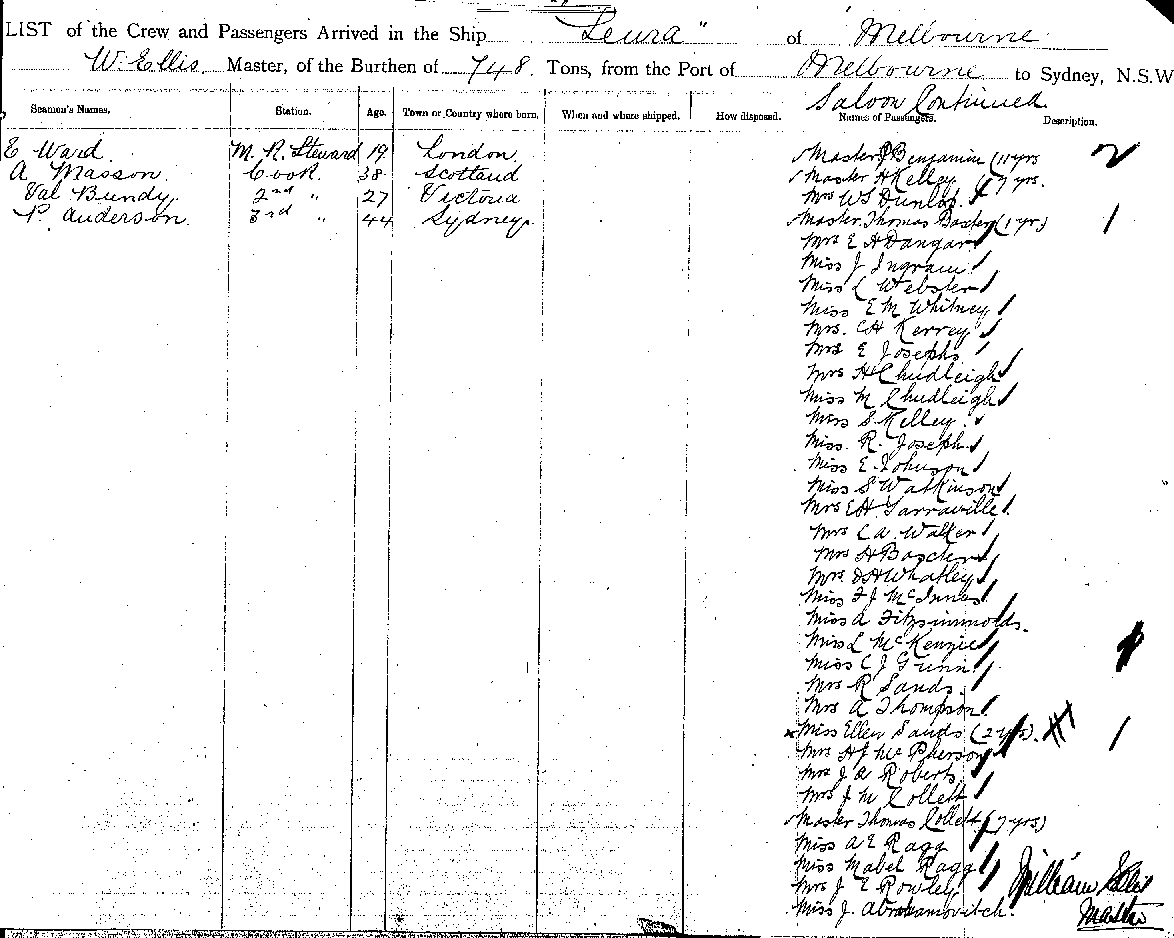 LIST of the Crew and Passengers Arrived in the Ship "Leura" of Melbourne
W. Ellis, Master, of the Burthen of 748 Tons, from the Port of Melbourne to Sydney, N.S.W
Saloon Continued
Seamen's Names. Station. Age. Town or Country where born. When and where shipped. How disposed. Names of Passengers. Description.
E Ward M. R. Steward 19 London
A Masson Cook 38 Scotland
Val Bundy 2nd " 27 Victoria
P. Anderson 3rd " 44 Sydney
Master P Benjamin (11 yrs 2
Master H Kelley (7 yrs.
Mrs W S Dunlop
Master Thomas Baxter (1 yr) 1
Mrs E H Dangar
Miss J Ingram
Miss L Webster
Miss E M Whitney
Mrs. C H Kerrey
Mrs E Josephs
Mrs H Chudleigh
Miss M Chudleigh
Miss S Kelley
Miss R. Joseph
Miss E. Johnson
Miss S Watkinson
Mrs E H Yarraville
Mrs C A Walker
Mrs H Baxter
Mrs D H Whatley
Miss F J McInnes
Miss A Fitzsimmolds
Miss L McKenzie
Miss C J Gunn
Mrs R Sands
Mrs A Thompson
Miss Ellen Sands (2 yrs). 1
Mrs H J McPherson
Mrs J A Roberts
Mrs J M Collett
Master Thomas Collett (7 yrs)
Miss A E Ragg
Miss Mabel Ragg
Mrs J E Rowley
Miss J. Abrahamovitch.
William Ellis
Master